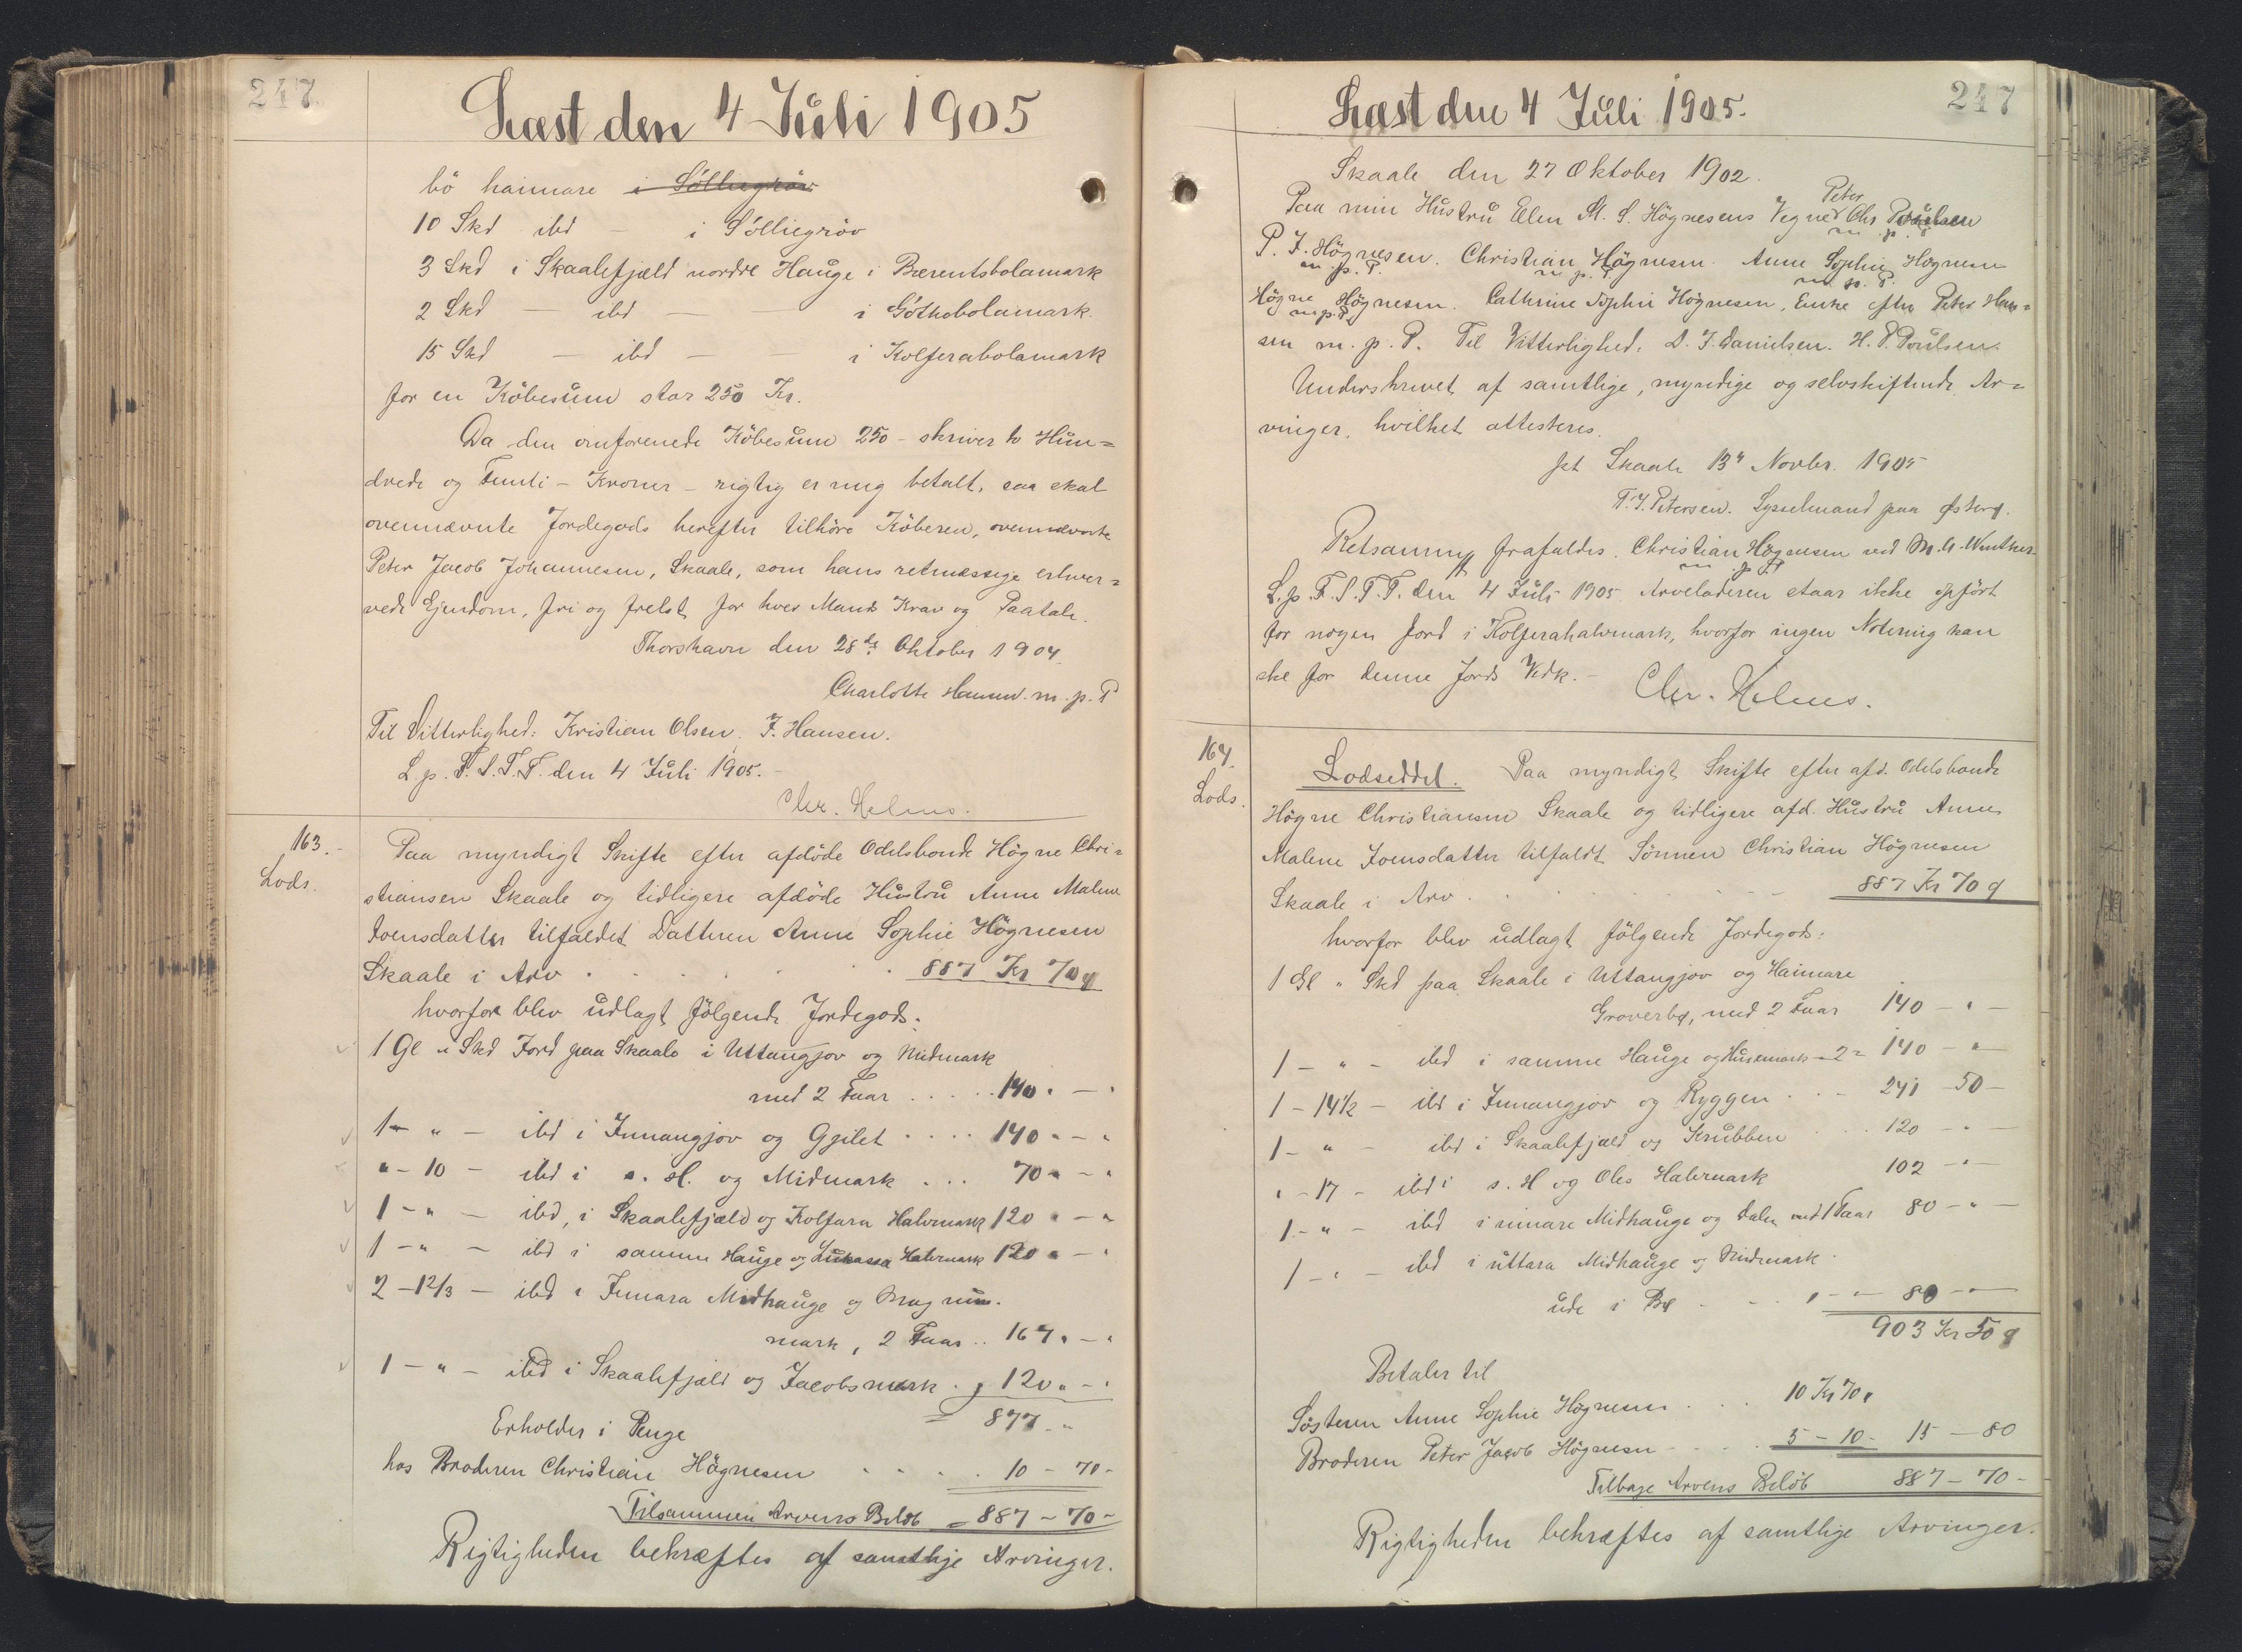 247
Læst den 4 Juli 1905
bö haimare i Sölliegröv
10 Skd ibd — i Sölliegröv
3 Skd i Skaalefjæld nordre Hauge i Bærentsbolamark
2 Skd — ibd — — i Göthobolamark.
15 Skd — ibd — — i Kolferabolamark
for en Köbesum stor 250 Kr.
Da den omforenede Köbesum 250 - skriver to Hun=
drede og Femti - Kroner - rigtig er mig betalt, saa skal
ovennævnte Jordegods herefter tilhöre Köberen, ovennævnte
Peter Jacob Johannesen, Skaale, som hans retmæssige erhver=
vede Ejendom, fri og frelst for hver Mands Krav og Paatale.
Thorshavn den 28de Oktober 1904.
Charlotte Hammer m. p. P
Til Vitterlighed: Kristian Olsen. J. Hansen.
L. p. F. S. T. T. den 4 Juli 1905. -
Chr. Helms.
163. -
Lods.
Paa myndigt Skifte efter afdöde Odelsbonde Högne Chri=
stiansen Skaale og tidligere afdöde Hustru Anne Malene
Joensdatter tilfaldet Datteren Anne Sophie Högnesen
Skaale i Arv . . . . . . 887 Kr 70 ø
hvorfor blev udlagt fölgende Jordegods:
1 Gl " Skd Jord paa Skaale i Uttangjov og Midmark
med 2 Faar . . . . . 140 " - "
1 - " - ibd i Innangjov og Ggilet . . . . 140 " - "
" - 10 - ibd i s. H. og Midmark . . . 70 " - "
1 - " - ibd, i Skaalefjæld og Kolfara Halvmark 120 " - "
1 - " - ibd i samme Hauge og Lukassa Halvmark 120 " - "
2 - 12/3 - ibd i Innara Midhauge og Magnus-
mark, 2 Faar . . 167 " - "
1 - " - ibd i Skaalefjæld og Jacobsmark . 120 " - "
877 - "
Erholder i Penge
hos Broderen Christian Högnesen . . . . 10 - 70 -
Tilsammen Arvens Belöb = 887 - 70 -
Rigtigheden bekræftes af samtlige Arvinger.
Læst den 4 Juli 1905.
247
Skaale den 27 Oktober 1902.
Peter
Paa min Hustru Elen M. S. Högnesens Vegne Chr Poulsen
m. p. P
P. J. Högnesen. Christian Högnesen. Anne Sophie Högnesen
m. p. P. m. p. P m. p. P.
Högne Högnesen. Cathrine Sophie Högnesen, Enke efter Peter Han=
m. p. P.
sen m. p. P. Til Vitterlighed: D. J. Danielsen. H. P. Poulsen.
Underskrevet af samtlige, myndige og selvskiftende Ar=
vinger, hvilket attesteres.
pt Skaale 13de Novbr. 1905
T. J. Petersen. Sysselmand paa Österø.
Retsanmrk frafaldes. Christian Högnesen ved M. A. Winther.
m. p. P
L. p. F. S. T. T. den 4 Juli 1905. Arveladeren staar ikke opfört
for nogen Jord i Kolferahalvmark, hvorfor ingen Notering kan
ske for denne Jords Vedk. - Chr. Helms.
164.
Lods.
Lodseddel. Paa myndigt Skifte efter afd. Odelsbonde
Högne Christiansen Skaale og tidligere afd. Hustru Anne
Malene Joensdatter tilfaldt Sönnen Christian Högnesen
Skaale i Arv . . . . . . 887 Kr 70 ø
hvorfor blev udlagt fölgende Jordegods:
1 Gl " Skd paa Skaale i Uttangjov og Haimare
Groverbø, med 2 Faar 140 - " -
1 - " - ibd i samme Hauge og Husemark - 2 = 140 - " -
1 - 14 1/2 - ibd i Innangjov og Ryggen . . - 241 - 50 -
1 - " - ibd i Skaalefjæld og Krubben . . . 120 - " -
" - 17 - ibd i s. H og Oles Halvmark 102 - " -
1 - " - ibd i innare Midhauge og Dalen med 1 Faar 80 - " -
1 - " - ibd i uttara Midhauge og Midmark
ude i Bø - . . " - - 80 - " -
903 Kr 50 ø
Betaler til
Sösteren Anne Sophie Högnesen . . . 10 Kr 70 "
Broderen Peter Jacob Högnesen - . . . 5 - 10 - 15 - 80
Tilbage Arvens Belöb 887 - 70 -
Rigtigheden bekræftes af samtlige Arvinger.